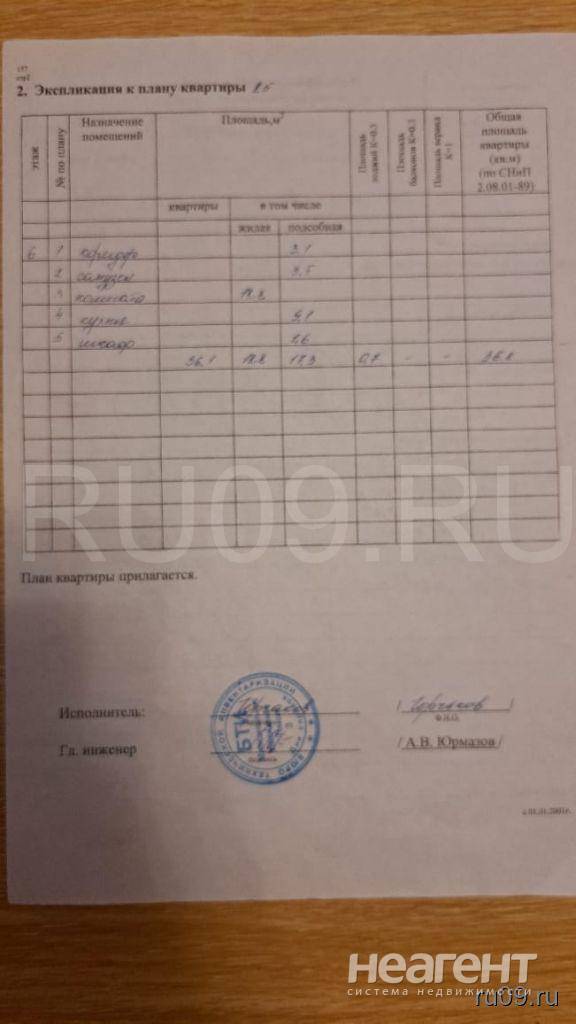 2. Экспликация к плану квартиры
этаж
№ по плану
Назначение помещений
Площадь, м²
Площадь лоджий К=0,5
Площадь балконов К=0,3
Площадь веранд К=1
Общая площадь квартиры (кв.м) (по СНиП 2.08.01-89)
квартиры
в том числе
жилая
подсобная
6 1 коридор 3,1
2 санузел 3,5
3 комната
4 кухня 9,1
5 шкаф 1,6
36,1 0,7 - - 36,8
RU09.RU
План квартиры прилагается.
Исполнитель:
Ф.И.О.
Гл. инженер
/ А.В. Юрмазов /
подпись
БТИ
БЮРО ТЕХНИЧЕСКОЙ ИНВЕНТАРИЗАЦИИ
с 01.01.2001г.
НЕАГЕНТ
система недвижимости
ru09.ru